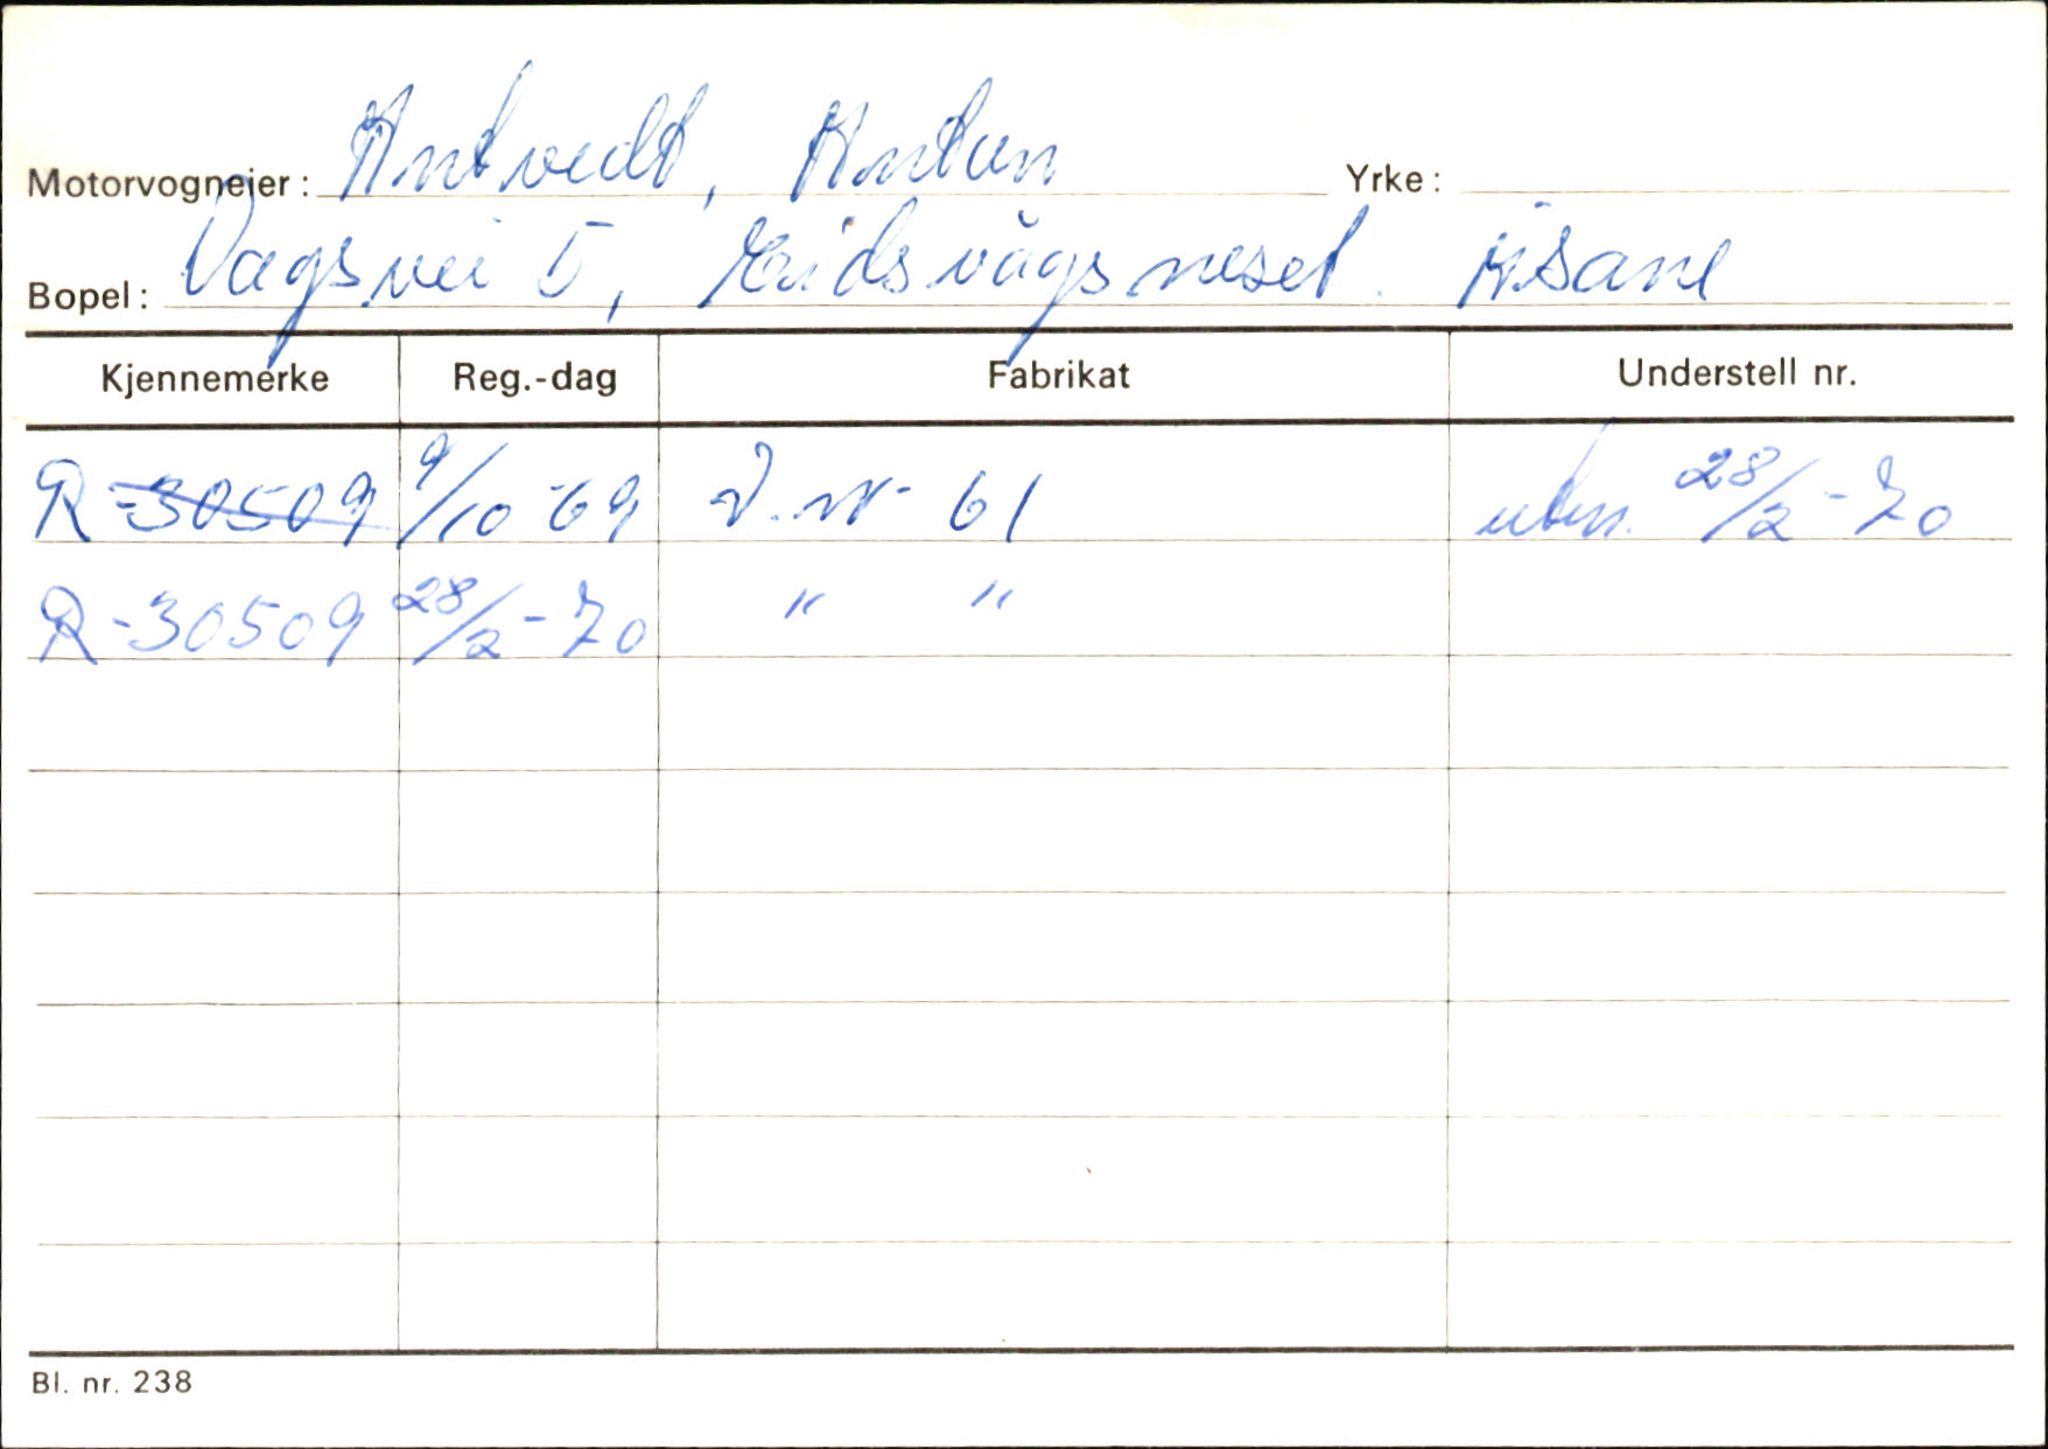 Motorvogneier: Antvedt, Anton Yrke:
Bopel: Dagsvei 5, Eidsvågsneset. Åsane
Kjennemerke Reg.-dag Fabrikat Understell nr.
R-30509 9/10-69 V.W- 61 utm. 28/2-70
R-30509 28/2-70 " "
Bl. nr. 238